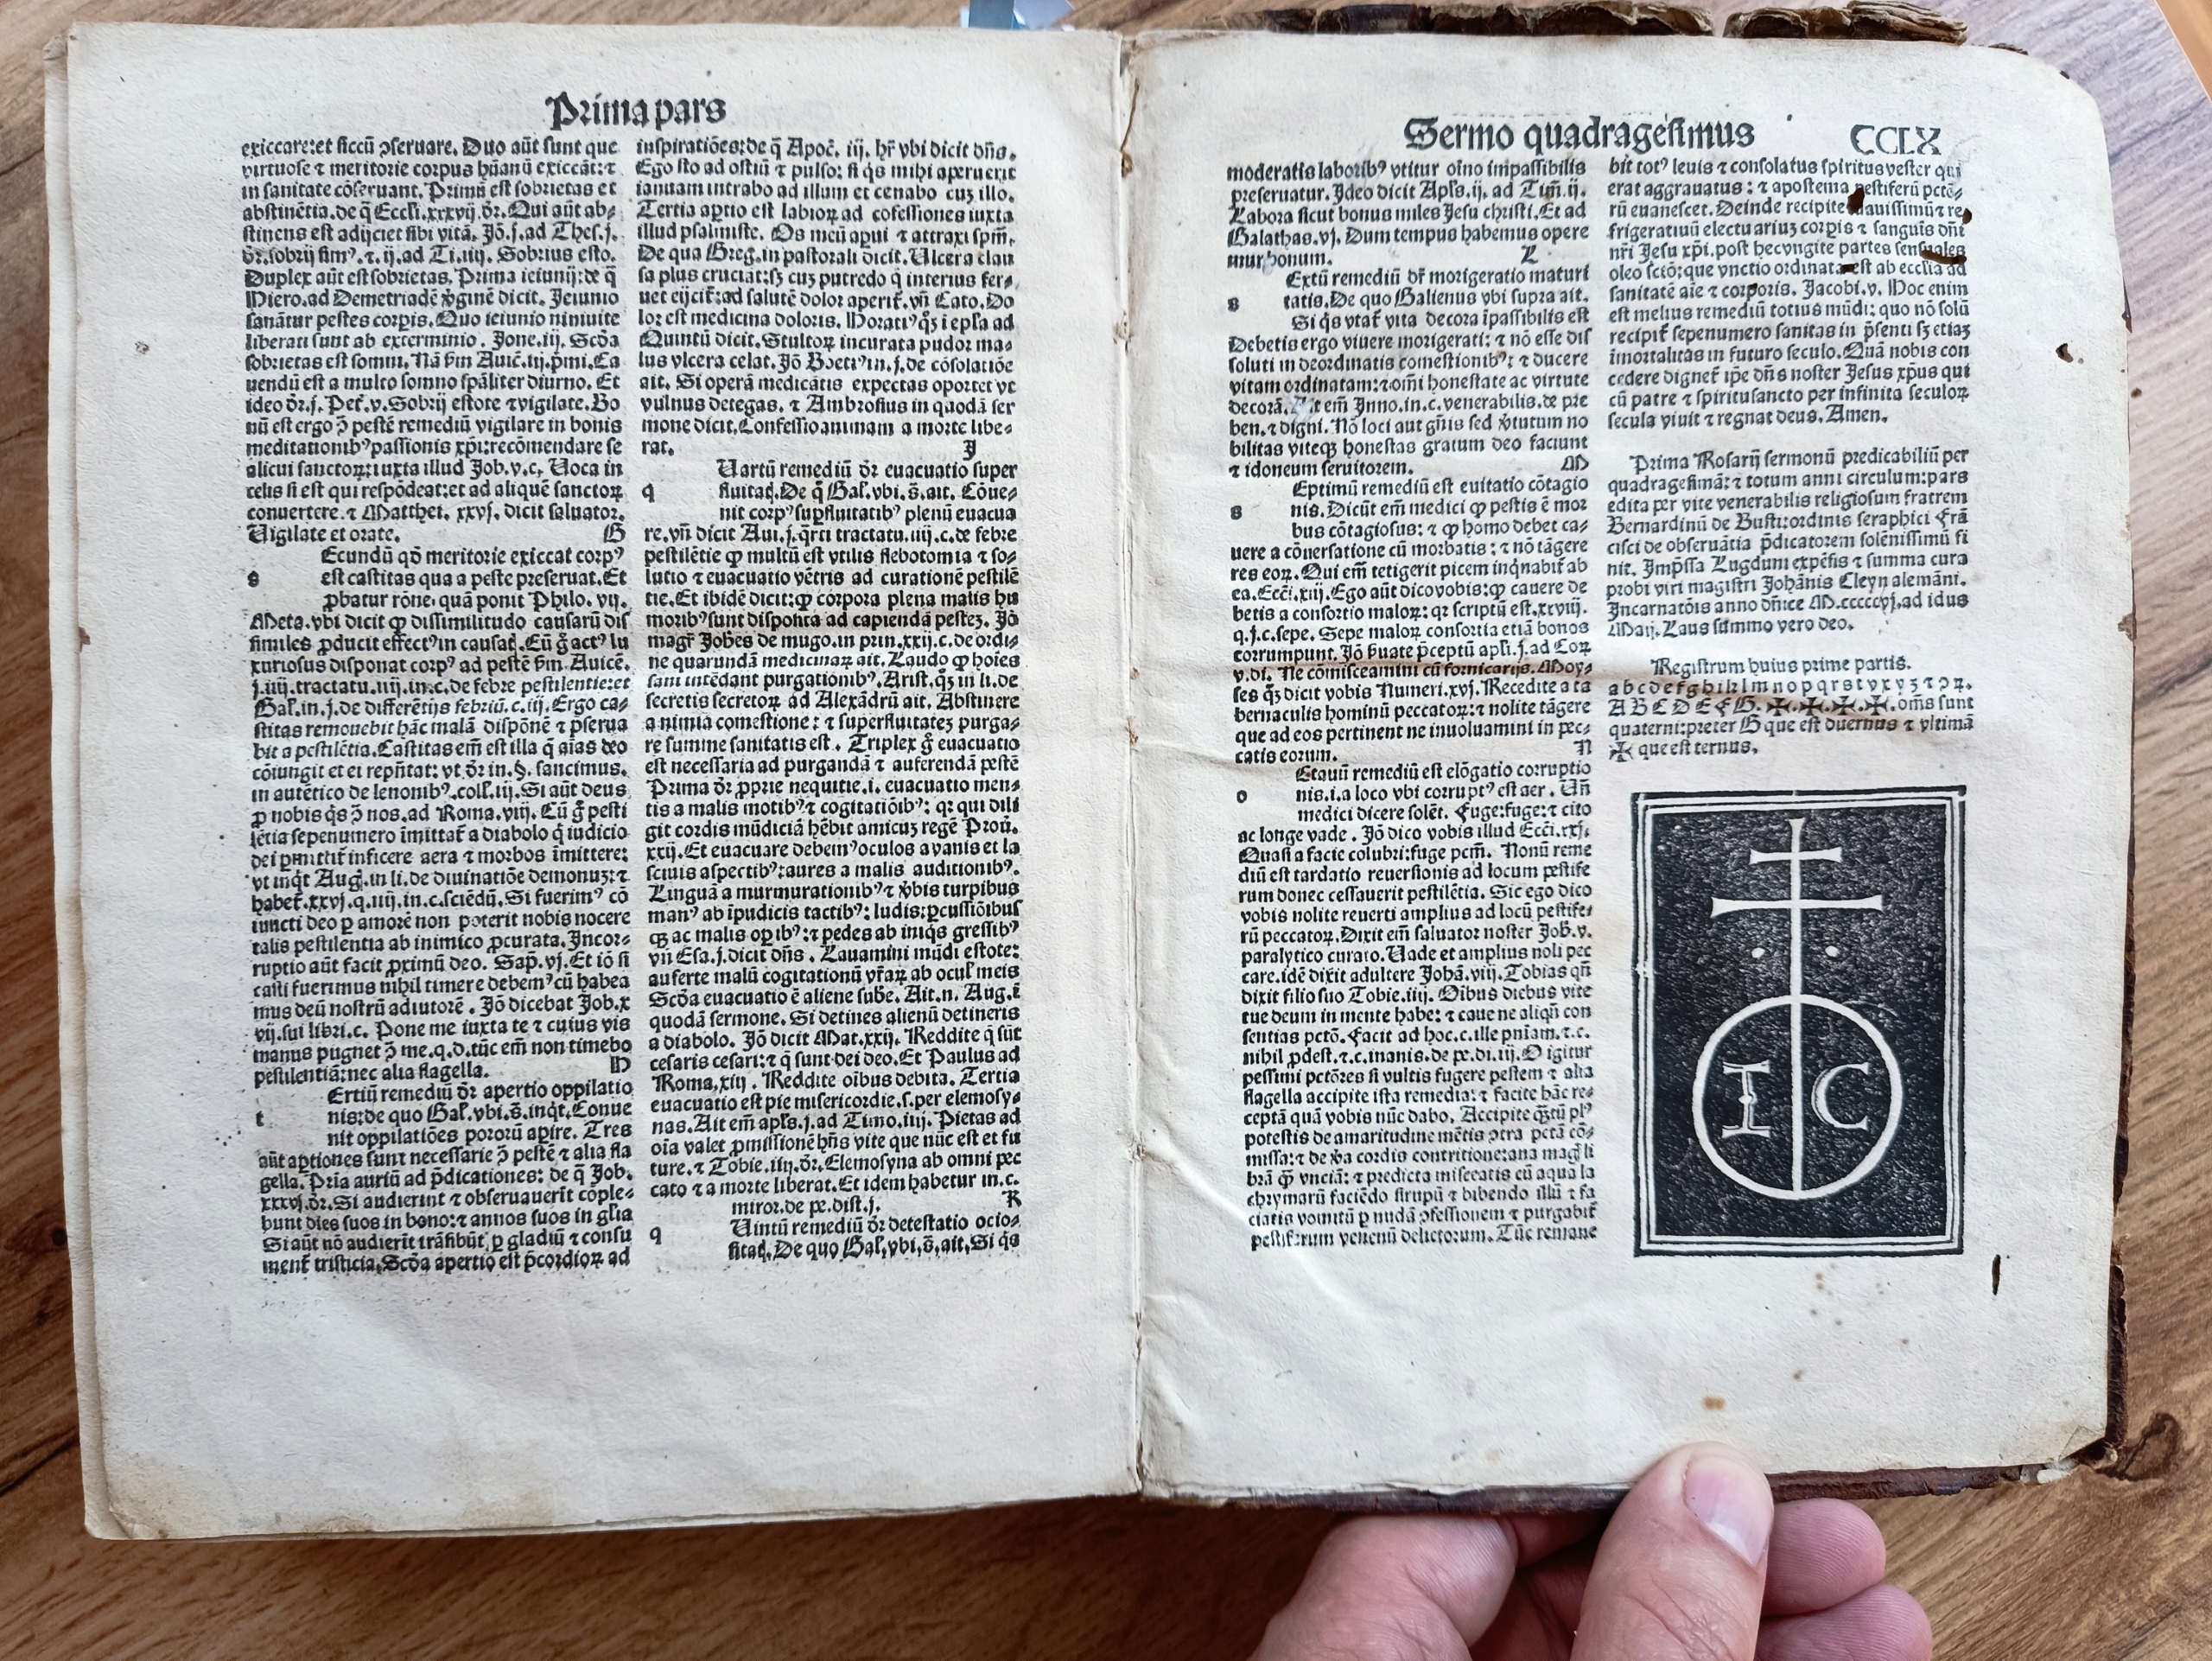 Prima pars
exiccare:et siccū ɔseruare. Duo aūt sunt que
virtuose ⁊ meritorie corpus hūanū exiccāt:⁊
in sanitate cōseruant. Primū est sobrietas et
abstinētia.de q̄ Eccli.xxxvij.dr̄. Qui aūt ab⸗
stinens est adijciet sibi vitā. Iō.j.ad Thes.j.
dr̄.sobrij sim⁹.⁊.ij.ad Ti.iiij. Sobrius esto.
Duplex aūt est sobrietas. Prima ieiunij:de q̄
Hiero.ad Demetriadē v̄ginē dicit. Ieiunio
sanātur pestes corpis. Quo ieiunio niniuite
liberati sunt ab exterminio. Jone.iij. Scd̄a
sobrietas est somni. Nā s̄m Auic̄.iij.p̄mi. Ca
uendū est a multo somno sp̄aliter diurno. Et
ideo dr̄.j. Pet̄.v. Sobrij estote ⁊ vigilate. Bo
nū est ergo ɔ̄ pestē remediū vigilare in bonis
meditationib⁹ passionis xp̄i:recōmendare se
alicui sanctoꝝ:iuxta illud Job.v.c. Uoca in
celis si est qui respōdeat:et ad aliquē sanctoꝝ
conuertere.⁊ Matthei. xxvj. dicit saluator.
Vigilate et orate. G
Ecundū qd̄ meritorie exiccat corp⁹
s est castitas qua a peste preseruat. Et
ꝓbatur rōne. quā ponit Philo. vij.
Meta.vbi dicit ꝙ dissimilitudo causarū dis
similes ꝓducit effect⁹ in causaꝭ. Cū g̊ act⁹ lu
xuriosus disponat corp⁹ ad pestē s̄m Auicē.
j.iiij.tractatu.iiij.in.c.de febre pestilentie:et
Gal̄.in.j.de differētijs febriū.c.iij. Ergo ca⸗
stitas remouebit hāc malā dispōnē ⁊ p̄serua
bit a pestilētia. Castitas em̄ est illa q̄ aīas deo
cōiungit et ei rep̄ntat: vt dr̄ in.§. sancimus.
in autētico de lenonib⁹.coll̄.iij. Si aūt deus
ꝓ nobis q̇s ɔ̄ nos.ad Roma.viij. Cū g̊ pesti
lētia sepenumero īmittat̄ a diabolo q̇ iudicio
dei ꝑmittit̄ inficere aera ⁊ morbos īmittere:
vt inq̇t Aug̊.in li.de diuinatiōe demonuz:⁊
habet̄.xxvj.q.iiij.in.c.sciēdū. Si fuerim⁹ cō
iuncti deo ꝑ amorē non poterit nobis nocere
talis pestilentia ab inimico ꝓcurata. Incor⸗
ruptio aūt facit ꝓximū deo. Sap̄.vj. Et iō si
casti fuerimus nihil timere debem⁹ cū habea
mus deū nostrū adiutorē. Iō dicebat Job.x
vij.sui libri.c. Pone me iuxta te ⁊ cuius vis
manus pugnet ɔ̄ me.q.d.tūc em̄ non timebo
pestilentiā:nec alia flagella. H
Ertiū remediū dr̄ apertio oppilatio
t nis:de quo Gal̄.vbi.s̄.inq̇t. Conue
nit oppilatiōes pororū aꝑire. Tres
aūt aꝑtiones sunt necessarie ɔ̄ pestē ⁊ alia fla
gella. Pria auriū ad p̄dicationes: de q̄ Job.
xxxvj.dr̄. Si audierint ⁊ obseruauerīt cōple⸗
bunt dies suos in bono:⁊ annos suos in gl̄ia
Si aūt nō audierīt trāsibūt ꝑ gladiū ⁊ consu
ment̄ tristicia. Scd̄a apertio est p̄cordioꝝ ad
inspiratiōes:de q̄ Apoc̄. iij. hr̄ vbi dicit dn̄s.
Ego sto ad ostiū ⁊ pulso: si q̇s mihi aperuerit
ianuam intrabo ad illum et cenabo cuz illo.
Tertia aꝑtio est labioꝝ ad cōfessiones iuxta
illud psalmiste. Os meū aꝑui ⁊ attraxi spm̄.
De qua Greg.in pastorali dicit. Ulcera clau
sa plus cruciāt:sꝫ cuz putredo q̄ interius fer⸗
uet eijcit̄:ad salutē dolor aperit̄. vn̄ Cato. Do
lor est medicina doloris. Horati⁹ qꝫ i epl̄a ad
Quintū dicit. Stultoꝝ incurata pudor ma⸗
lus vlcera celat. Iō Boeti⁹ in.j.de cōsolatiōe
ait. Si operā medicātis expectas oportet vt
vulnus detegas. ⁊ Ambrosius in quodā ser
mone dicit. Confessio animam a morte libe⸗
rat. J
Uartū remediū dr̄ euacuatio super
q fluitaꝭ. De q̄ Gal̄.vbi.s̄.ait. Cōue⸗
nit corp⁹ suꝑfluitatib⁹ plenū euacua
re.vn̄ dicit Aui.j.q̇rti tractatu.iiij.c.de febre
pestilētie ꝙ multū est vtilis flebotomia ⁊ so⸗
lutio ⁊ euacuatio vētris ad curationē pestilē
tie. Et ibidē dicit:ꝙ corpora plena malis hu
morib⁹ sunt disposita ad capiendā pestez. Iō
magr̄ Joh̄es de mugo.in prin.xxij.c.de ordi⸗
ne quarundā medicinaꝝ ait. Laudo ꝙ hoīes
sani intēdant purgationib⁹. Arist̄.qꝫ in li.de
secretis secretoꝝ ad Alexādrū ait. Abstinere
a nimia comestione: ⁊ superfluitatez purga⸗
re summe sanitatis est. Triplex g̊ euacuatio
est necessaria ad purgandā ⁊ auferendā pestē
Prima dr̄ ꝓprie nequitie.i. euacuatio men⸗
tis a malis motib⁹ ⁊ cogitatiōib⁹: qr qui dili
git cordis mūdiciā hēbit amicuz regē Prou̅.
xxij. Et euacuare debem⁹ oculos a vanis et la
sciuis aspectib⁹:aures a malis auditionib⁹.
Linguā a murmurationib⁹ ⁊ v̄bis turpibus
man⁹ ab īpudicis tactib⁹: ludis:ꝑcussiōibus
qꝫ ac malis oꝑib⁹:⁊ pedes ab iniq̇s gressib⁹
vn̄ Esa.j.dicit dn̄s. Lauamini mūdi estote:
auferte malū cogitationū vr̄aꝝ ab ocul̄ meis
Scd̄a euacuatio ē aliene sub̄e. Ait.n. Aug.ī
quodā sermone. Si detines alienū detineris
a diabolo. Iō dicit Mat.xxij. Reddite q̄ sūt
cesaris cesari:⁊ q̄ sunt dei deo. Et Paulus ad
Roma.xiij. Reddite oībus debita. Tertia
euacuatio est pie misericordie.s.per elemosy⸗
nas. Ait em̄ apl̄s.j.ad Timo.iiij. Pietas ad
oīa valet ꝓmissionē hn̄s vite que nūc est et fu
ture.⁊ Tobie.iiij.dr̄. Elemosyna ab omni pec
cato ⁊ a morte liberat. Et idem habetur in.c.
miror.de pe.dist.j. K
Uintū remediū dr̄ detestatio ocio⸗
q sitaꝭ. De quo Gal̄.vbi.s̄.ait. Si q̇s
Sermo quadragesimus CCLX
moderatis laborib⁹ vtitur oīno impassibilis
preseruatur. Ideo dicit Apl̄s.ij. ad Tim̄.ij.
Labora sicut bonus miles Jesu christi. Et ad
Galathas.vj. Dum tempus habemus opere
mur bonum. L
Extū remediū dr̄ morigeratio maturi
s tatis. De quo Galienus vbi supra ait.
Si q̇s vtat̄ vita decora īpassibilis est
Debetis ergo viuere morigerati: ⁊ nō esse dis
soluti in deordinatis comestionib⁹: ⁊ ducere
vitam ordinatam:⁊ om̄i honestate ac virtute
decorā. Ait em̄ Inno.in.c.venerabilis.de pre
ben.⁊ digni. Nō loci aut gn̄is sed v̄tutum no
bilitas viteqꝫ honestas gratum deo faciunt
⁊ idoneum seruitorem. M
Eptimū remediū est euitatio cōtagio
s nis. Dicūt em̄ medici ꝙ pestis ē mor
bus cōtagiosus: ⁊ ꝙ homo debet ca⸗
uere a cōuersatione cū morbatis: ⁊ nō tāgere
res eoꝝ. Qui em̄ tetigerit picem inq̇nabit̄ ab
ea. Ecci̅.xiij. Ego aūt dico vobis:ꝙ cauere de
betis a consortio maloꝝ: qr scriptū est.xxviij.
q.j.c.sepe. Sepe maloꝝ consortia etiā bonos
corrumpunt. Iō s̄uate p̄ceptū apl̄i.j.ad Coꝝ
v.di. Ne cōmisceamini cū fornicarijs. Moy⸗
ses qꝫ dicit vobis Numeri.xvj. Recedite a ta
bernaculis hominū peccatoꝝ: ⁊ nolite tāgere
que ad eos pertinent ne inuoluamini in pec⸗
catis eorum. N
Ctauū remediū est elōgatio corruptio
o nis.i.a loco vbi corrupt⁹ est aer. Un̄
medici dicere solēt. Fuge:fuge:⁊ cito
ac longe vade. Iō dico vobis illud Ecci̅.xxj.
Quasi a facie colubri:fuge pcm̄. Nonū reme
diū est tardatio reuersionis ad locum pestife
rum donec cessauerit pestilētia. Sic ego dico
vobis nolite reuerti amplius ad locū pestife⸗
rū peccatoꝝ. Dixit em̄ saluator noster Joh̄.v.
paralytico curato. Uade et amplius noli pec
care.idē dixit adultere Johā.viij. Tobias qn̄
dixit filio suo Tobie.iiij. Oībus diebus vite
tue deum in mente habe: ⁊ caue ne aliqn̄ con
sentias pctō. Facit ad hoc.c.ille pn̄iam.⁊.c.
nihil ꝓdest.⁊.c.inanis.de pe.di.iij. O igitur
pessimi pctōres si vultis fugere pestem ⁊ alia
flagella accipite ista remedia: ⁊ facite hāc re⸗
ceptā quā vobis nūc dabo. Accipite q̄ꝫtū pl⁹
potestis de amaritudine mētis ɔtra pctā cō⸗
missa:⁊ de v̄a cordis contritione:ana mag̊ li
brā ꝙ̄ vnciā: ⁊ predicta misceatis cū aqua la
chrymarū faciēdo sirupū ⁊ bibendo illū ⁊ fa
ciatis vomitū ꝑ nudā ɔfessionem ⁊ purgabit̄
pestiferum venenū delictorum. Tūc remane
bit tot⁹ leuis ⁊ consolatus spiritus vester qui
erat aggrauatus: ⁊ apostema pestiferū pctō⸗
rū euanescet. Deinde recipite suauissimū ⁊ re
frigeratiuū electuariuz corpis ⁊ sanguīs dn̄i
nr̄i Jesu xp̄i.post hec vngite partes sensuales
oleo sctō:que vnctio ordinata est ab ecclīa ad
sanitatē aīe ⁊ corporis. Jacobi.v. Hoc enim
est melius remediū totius mūdi: quo nō solū
recipit̄ sepenumero sanitas in p̄senti sꝫ etiaz
īmortalitas in futuro seculo. Quā nobis con
cedere dignet̄ ip̄e dn̄s noster Jesus xp̄us qui
cū patre ⁊ spiritusancto per infinita seculoꝝ
secula viuit ⁊ regnat deus. Amen.
Prima Rosarij sermonū predicabiliū per
quadragesimā: ⁊ totum anni circulum:pars
edita per vite venerabilis religiosum fratrem
Bernardinū de Busti:ordinis seraphici Frā
cisci de obseruātia p̄dicatorem solēnissimū fi
nit. Imp̄ssa Lugduni expēsis ⁊ summa cura
probi viri magistri Johānis Cleyn alemāni.
Incarnatōis anno dn̄ice M.cccccvj.ad idus
Maij. Laus summo vero deo.
Registrum huius prime partis.
a b c d e f g h i k l m n o p q r s t v x y z ⁊ ɔ ꝝ.
A B C D E F G. ✠.✠.✠.✠. om̄s sunt
quaterni:preter G que est duernus ⁊ vltimā
✠ que est ternus.
I C